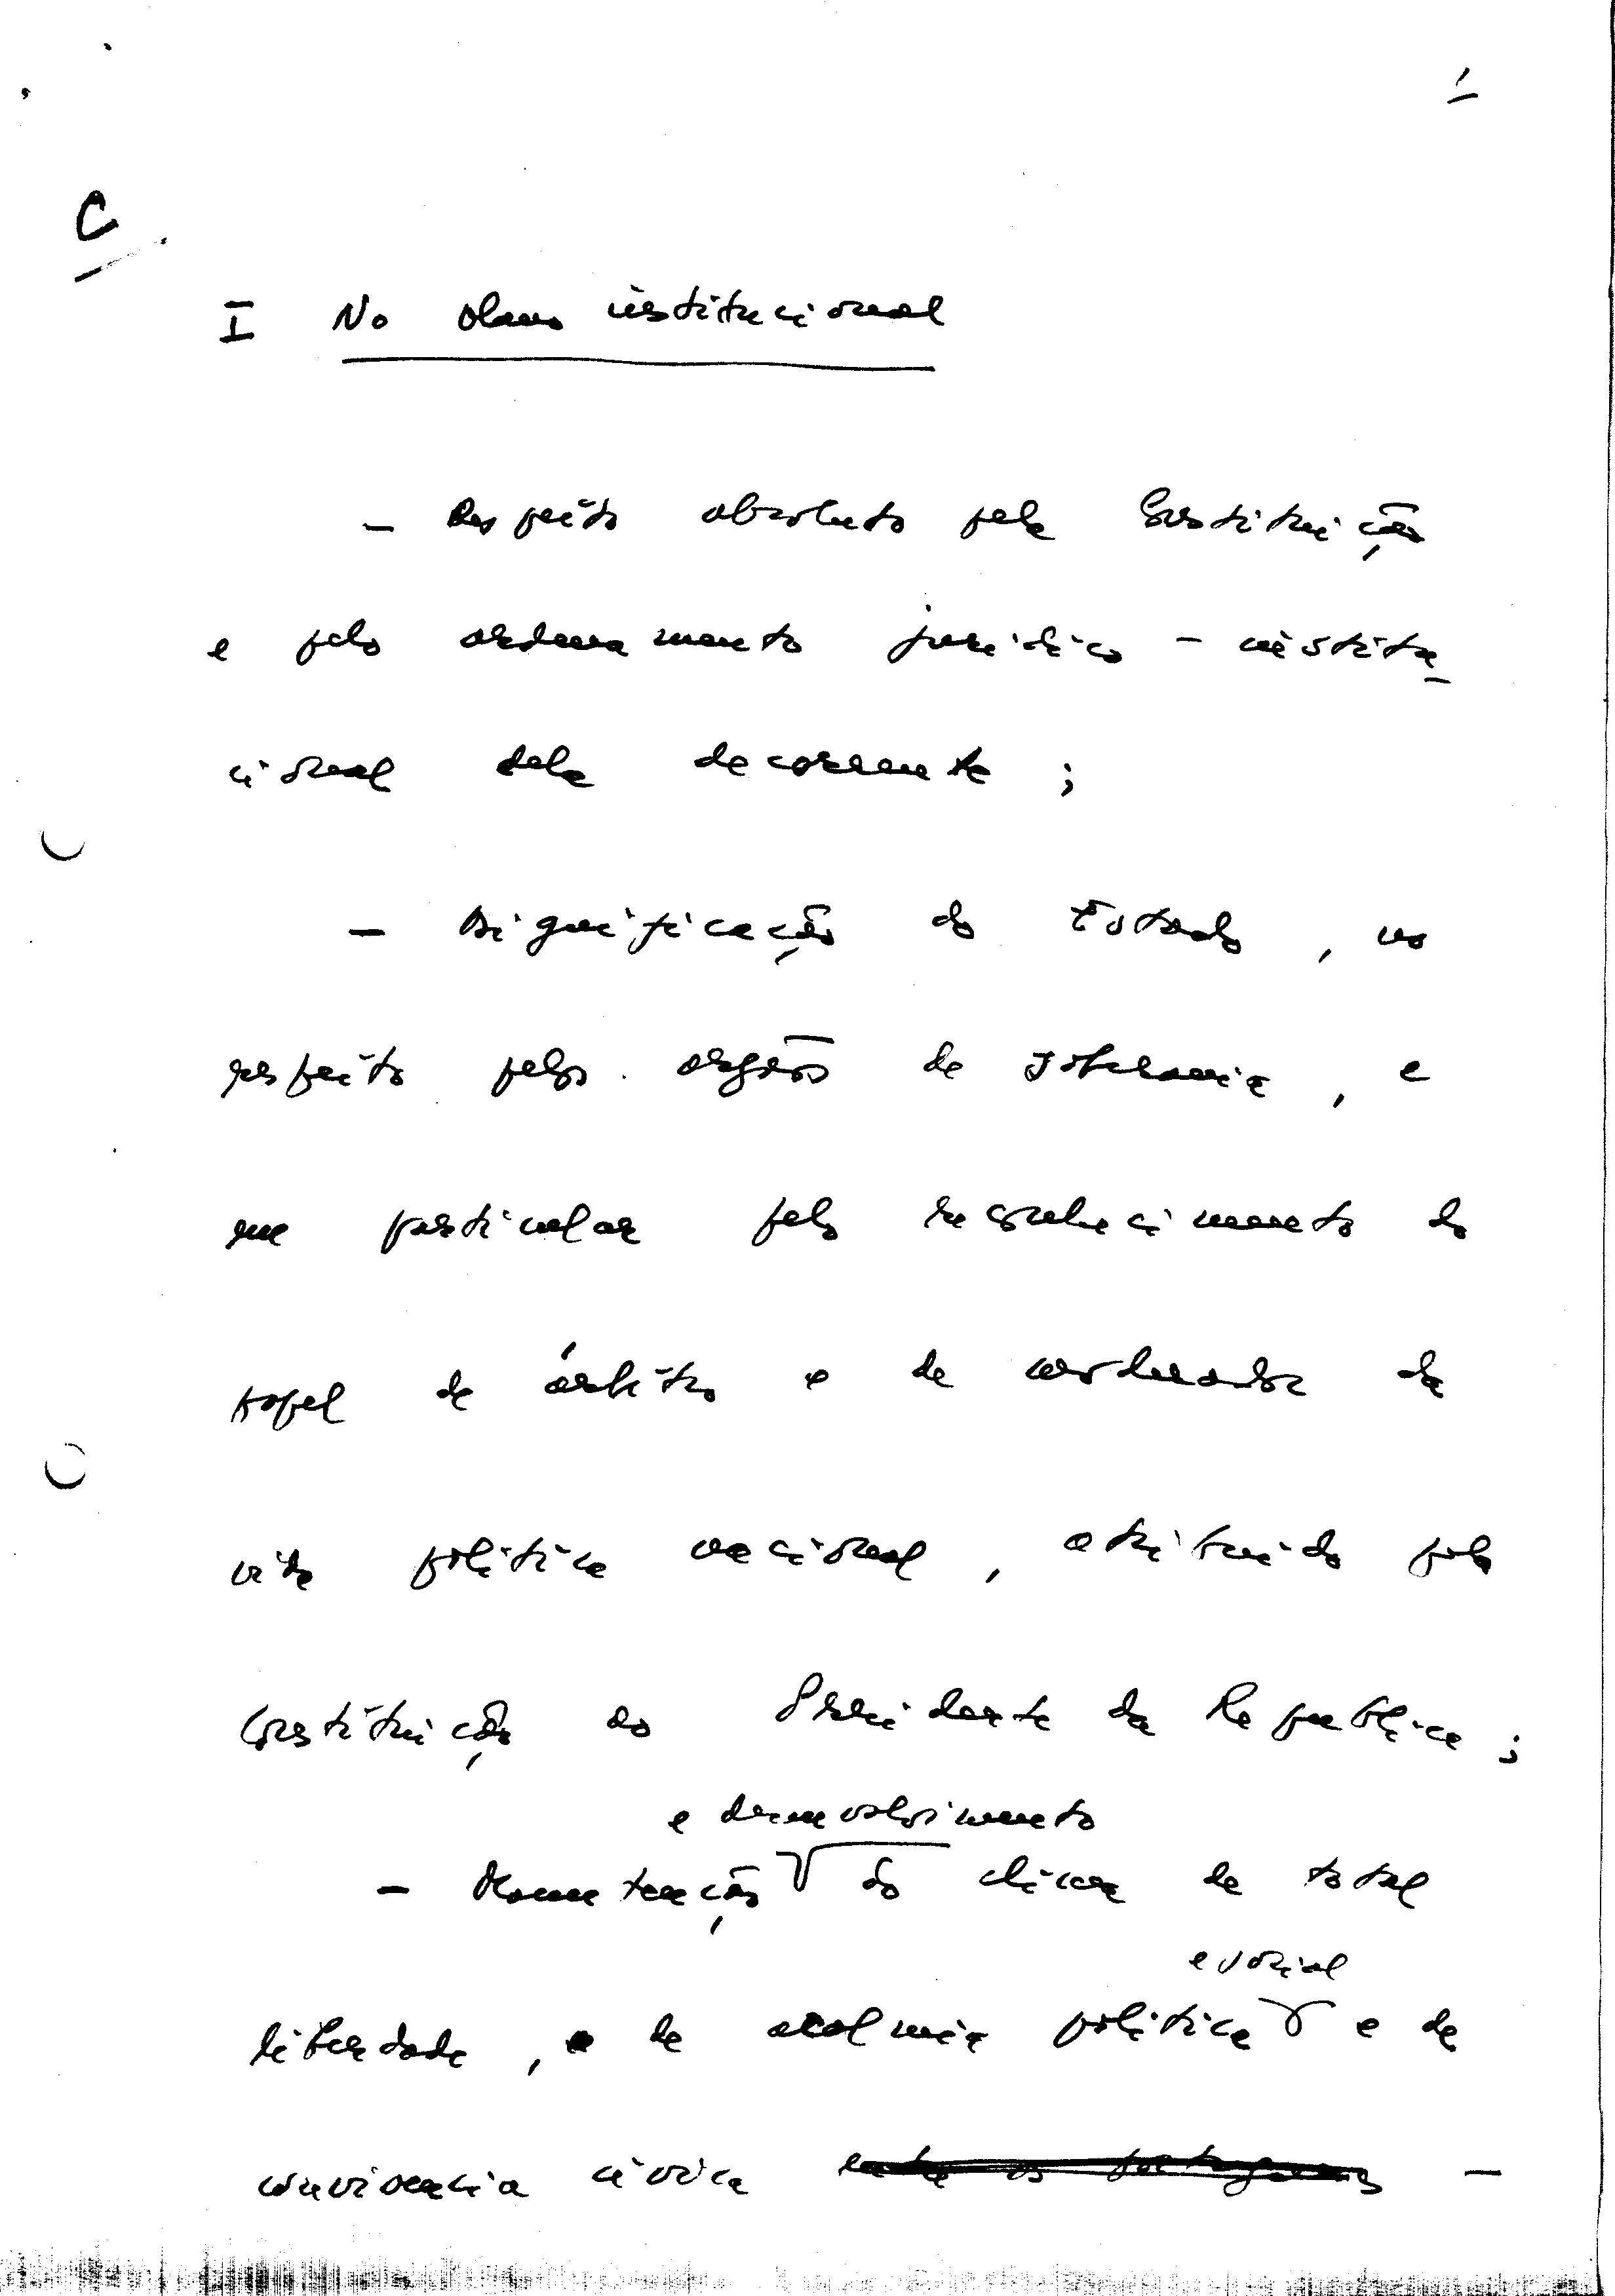 1
C
I No plano institucional
- Respeito absoluto pela Constituição
e pelo ordenamento juridico - institu
cional dela decorrente ;
- Dignificação do Estado, no
respeito pelos orgãos de soberania, e
em particular pelo reconhecimento do
papel de árbitro e de moderador da
vida politica nacional, atribuido pela
Constituição ao Presidente da Republica ;
e desenvolvimento
- Manutenção do clima de total
e social
liberdade, de acalmia politica e de
convivencia civica entre os portugueses -